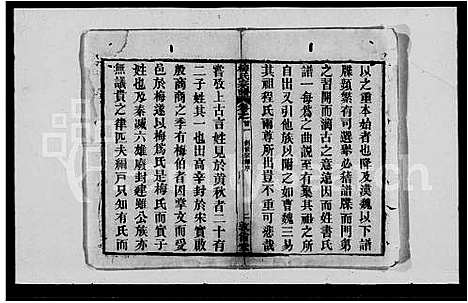 以之重本始者也降及漢魏以下譜
牒頗繁有司選舉必稽譜牒而門第
之習開而濶古之意遠因而姓書氏
譜一每為之曲說至有棄其祖之所
自出又引他族以附之如曹魏三易
其祖程氏兩尊所出豈不重可悲哉
嘗攷上古言姓見於黃秋者二十有
二子姓其一也出高辛封於宋實啟
般商商之季有梅伯者因章文而愛
邑於梅遂以梅爲氏是梅氏而實子
姓也及秦滅六雄廢封建雖公族亦
無議貴之律匹夫編戶只知有氏而